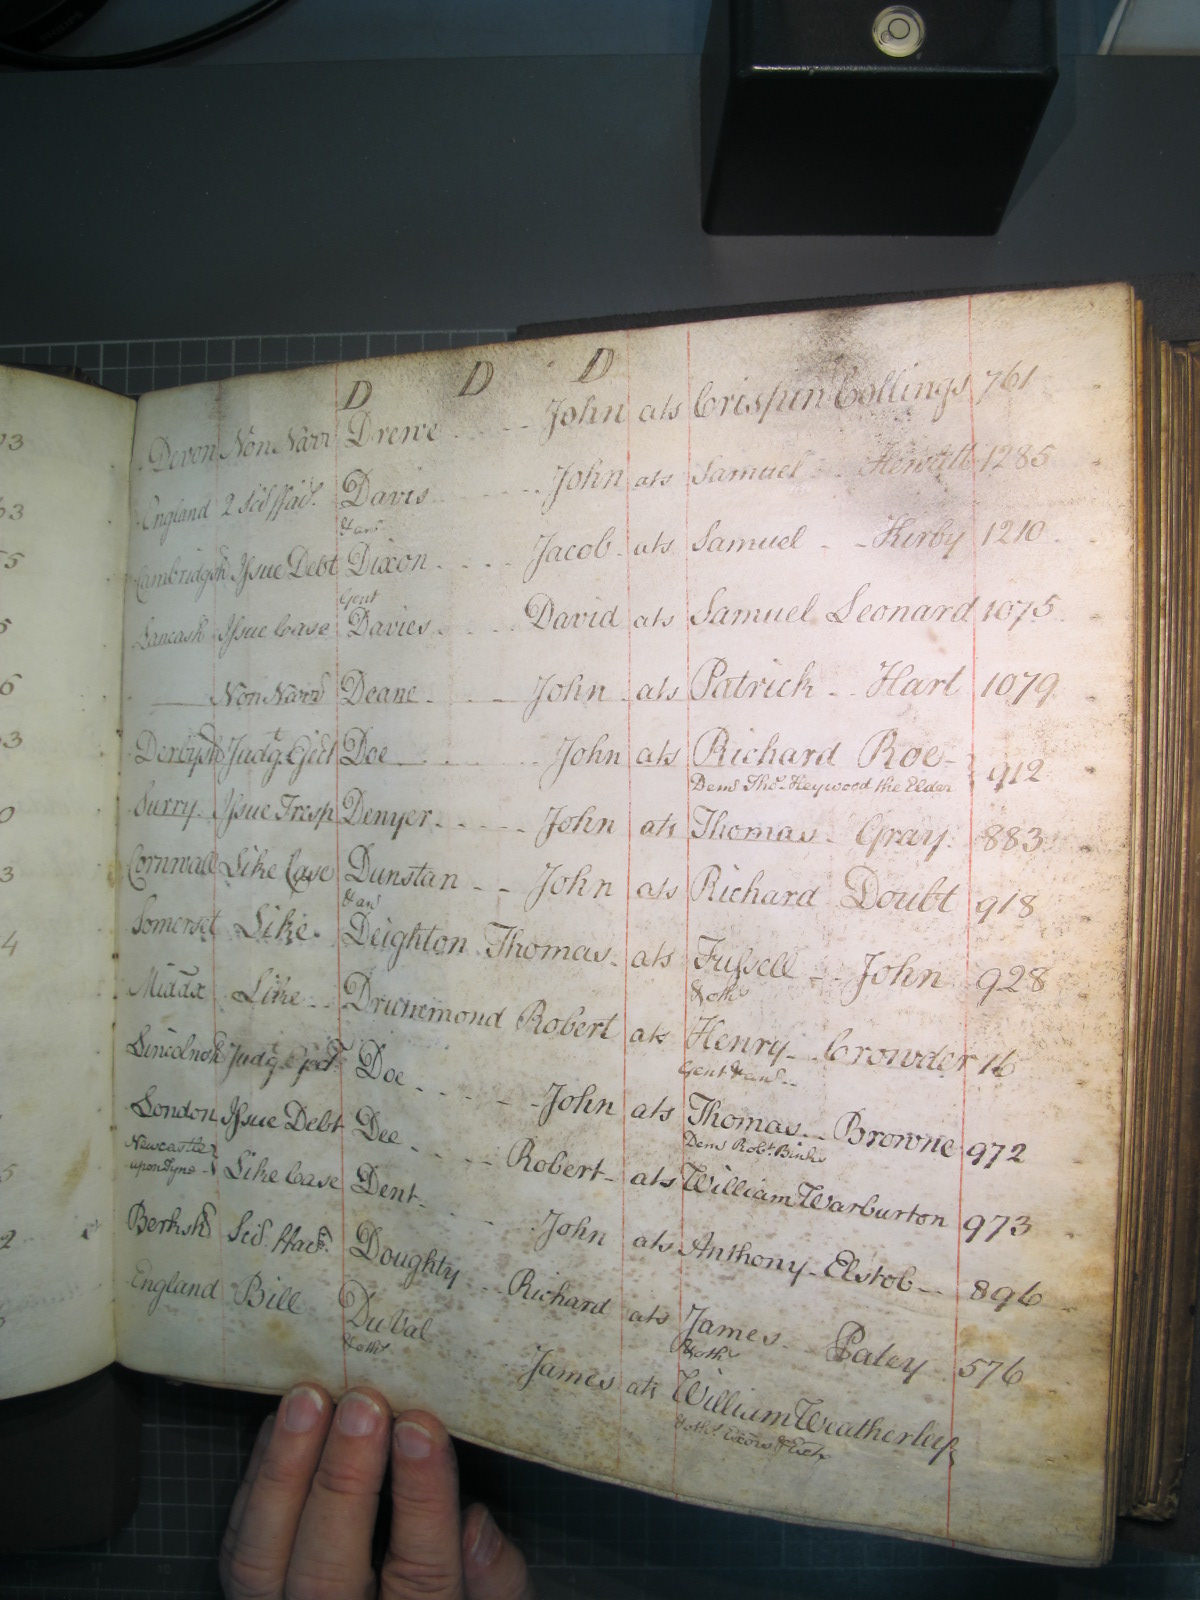 D D D
Devon Non Narr Drewe John ats Crispin Collings 761
England 2 Scī ffac̄ Davis John ats Samuel Hewitt 1285
& an.r
Cambridgsh Issue Debt Dixon Jacob ats Samuel Kirby 1210
Gent
Lancash Issue Case Davies David ats Samuel Leonard 1075
Non Narr Deane John ats Patrick Hart 1079
Derbysh Judg. Eject Doe John ats Richard Roe 912
Dem.s Tho.s Heywood the Elder
Surry Issue Tresp Denyer John ats Thomas Gray 883
Cornwall Like Case Dunstan John ats Richard Doubt 918
& an.r
Somerset Like Deighton Thomas ats Fussell John 928
& oth.rs
Middx Like Drummond Robert ats Henry Crowder 16
Gent & an.r
Lincolnsh Judg Eject Doe John ats Thomas Browne 972
Dem.s Rob.t Binks
London Issue Debt Dee Robert ats William Warburton 973
Newcastle
upon Tyne Like Case Dent John ats Anthony Elstob 896
Berksh Sci. ffac. Doughty Richard ats James Patey 576
& oth.rs
England Bill Du Val James ats William Weatherley
& oth.rs
3
63
5
5
6
3
0
3
4
5
2